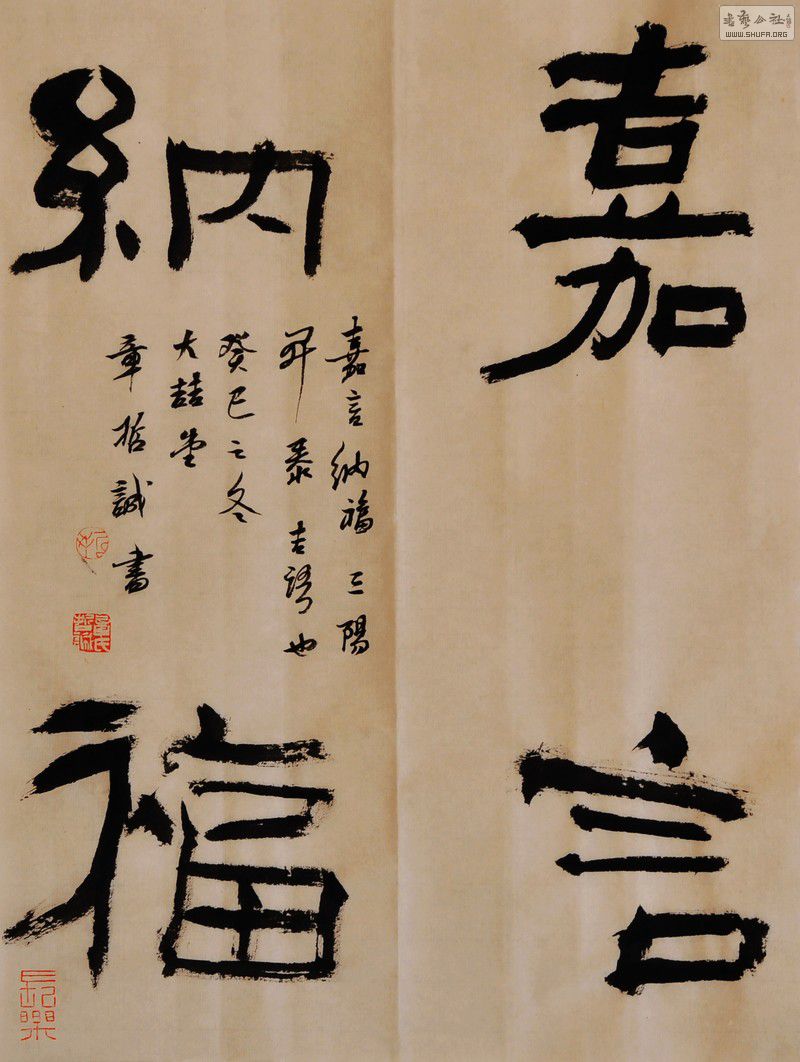 嘉言
納福
嘉言納福三陽
開泰吉語也
癸巳之冬
大喆堂
章哲誠書
長樂
書藝公社
WWW.SHUFA.ORG